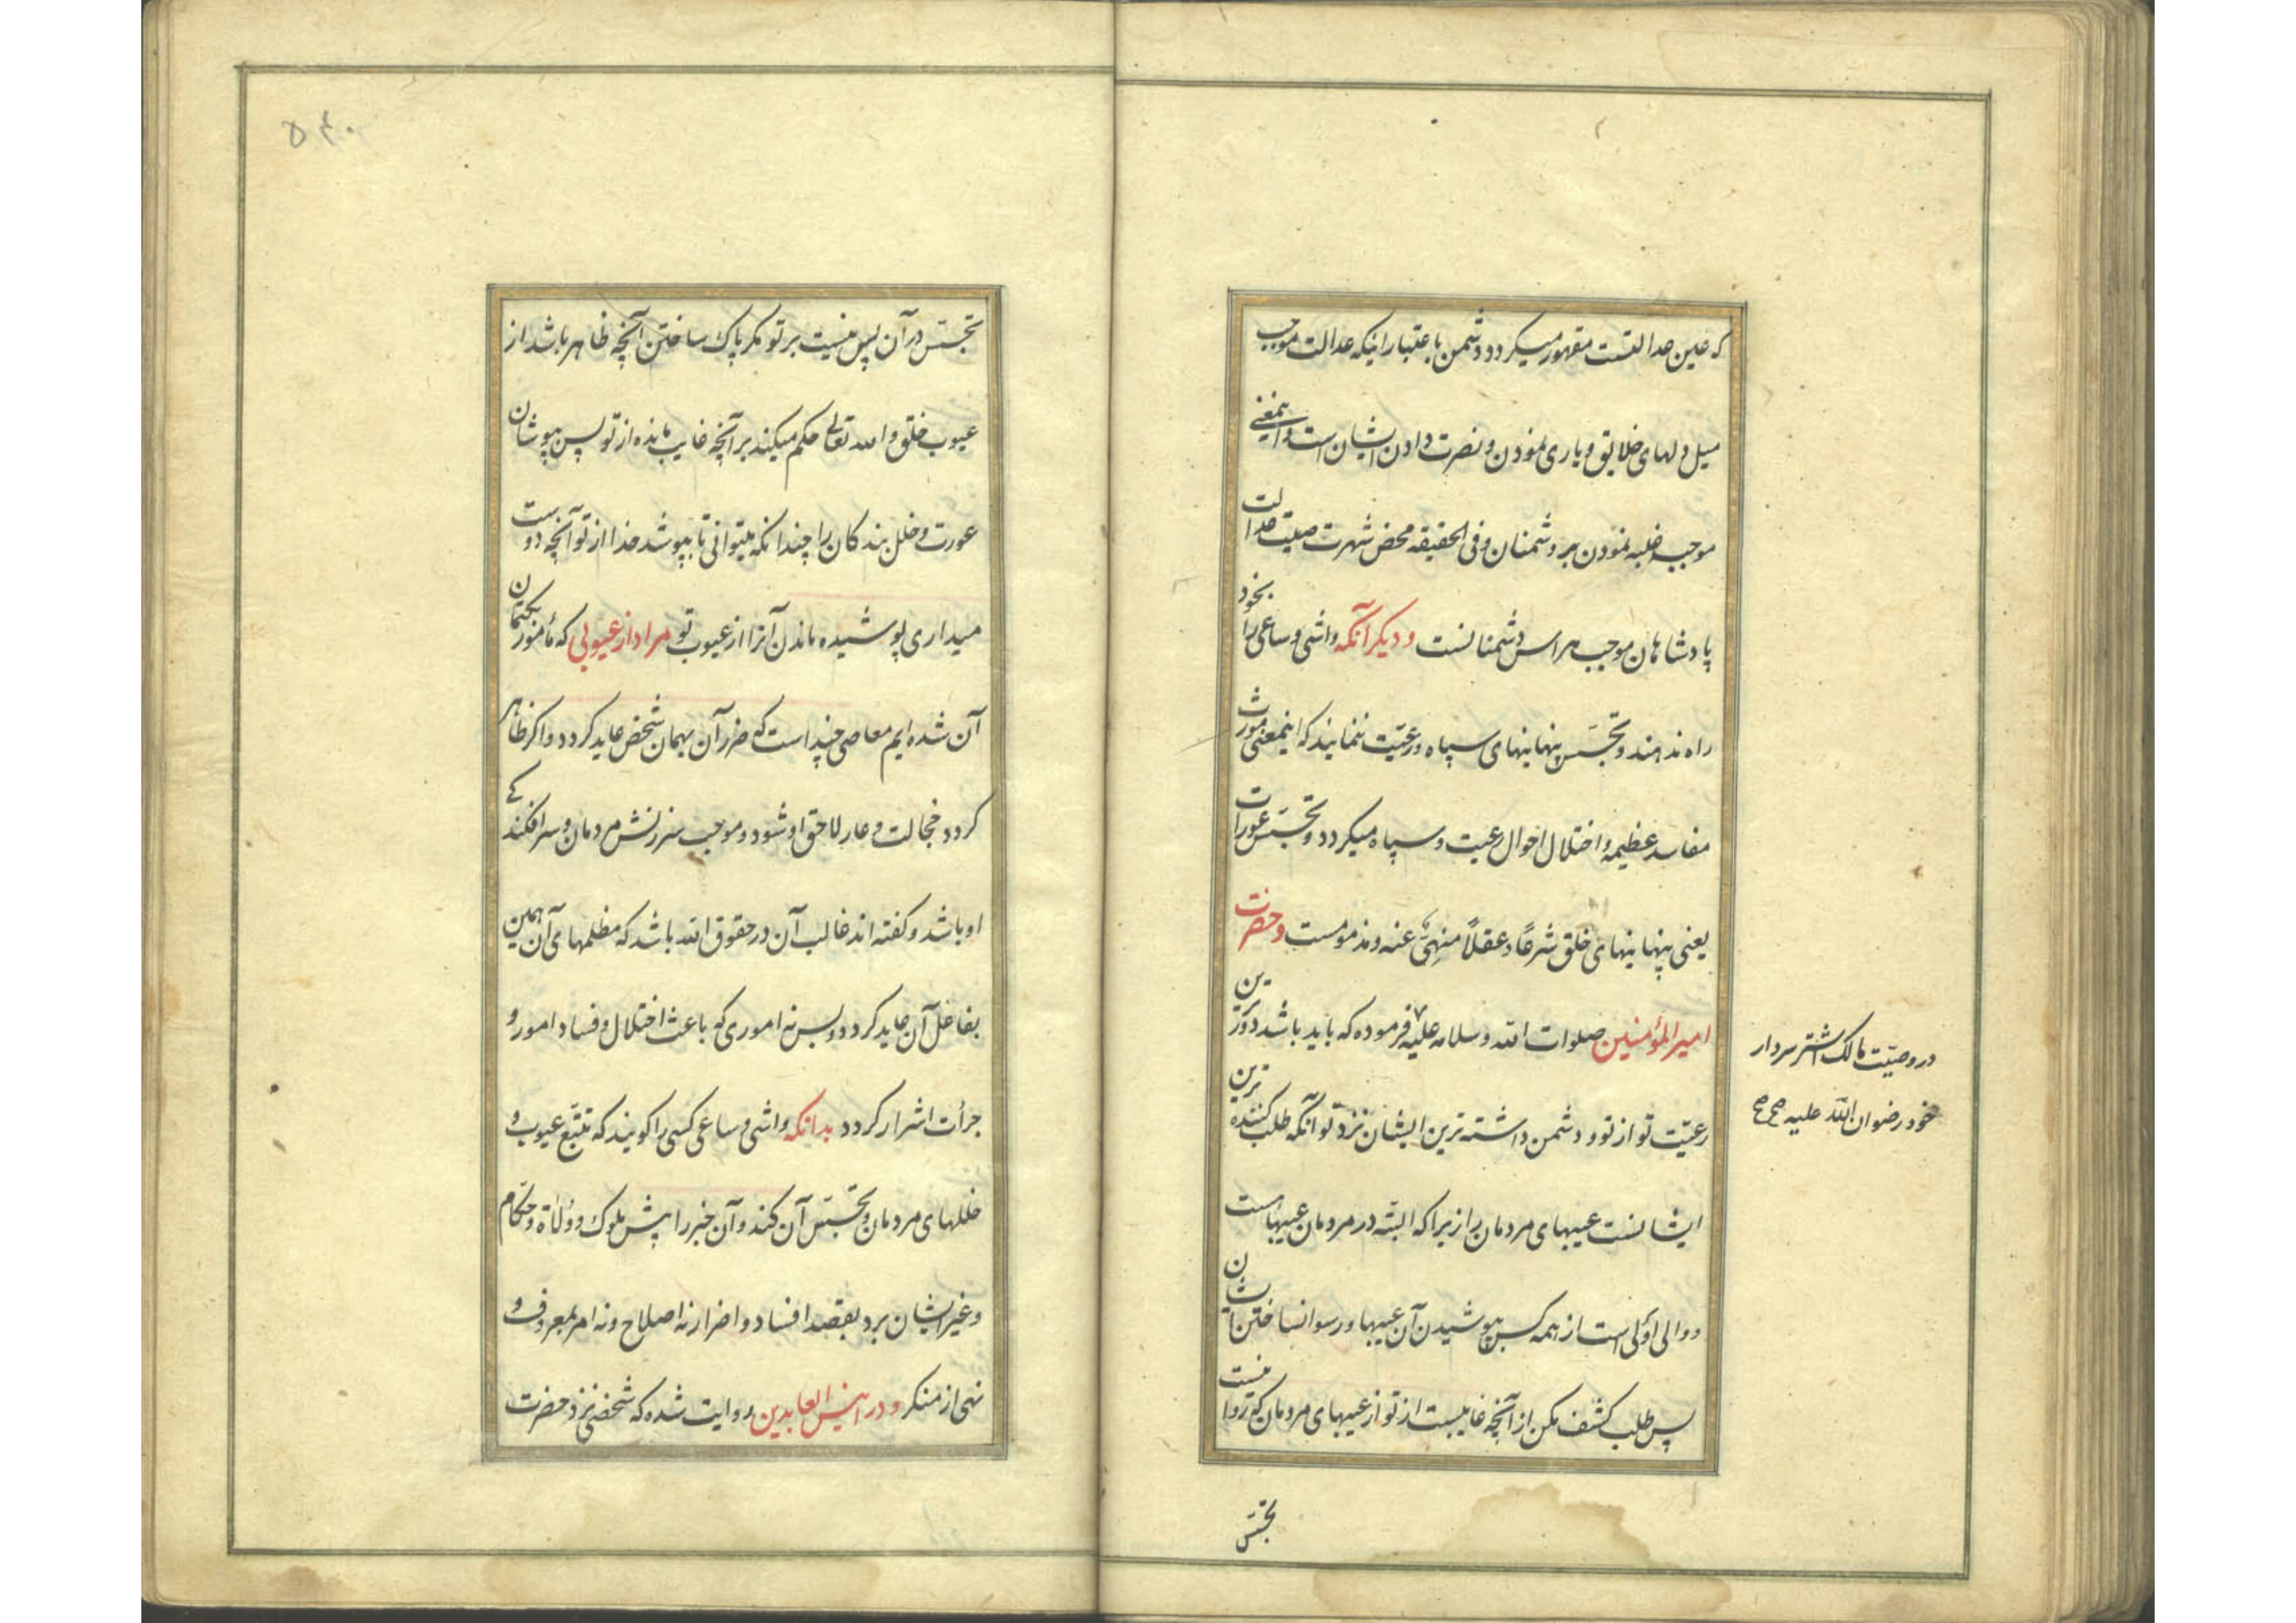 که عین عدالتست مقهور میکردد و دشمن باعتبار اینکه عدالت موجب
میل دلهای خلایق و یاری نمودن و نصرت دادن ایشان است و اینمعنی
موجب غلبه نمودن بر دشمنان و فی الحقیقه محض شهرت صیت عدالت
پادشاهان موجب هراس دشمنانست و دیکر آنکه واشی و ساعی را بخود
راه ندهند و تجسّس پنهانیهای سپاه و رعیّت ننمایند که اینمعنی مورث
مفاسد عظیمه و اختلال احوال رعیت و سپاه میکردد و تجسّس عورات
یعنی پنهانیهای خلق شرعًا و عقلاً منهیٌ عنه و مذمومست و حضرت
امیرالمؤمنین صلوات الله وسلامه علیه فرموده که باید باشد دورترین
رعیّت تو از تو و دشمن داشته ترین ایشان نزد تو آنکه طلب کننده ترین
ایشانست عیبهای مردمان را زیرا که البتّه در مردمان عیبهاست
و والی اولی است از همه کس بپوشیدن آن عیبها و رسوا نساختن ایشان
پس طلب کشف مکن از آنچه غایبست از تو از عیبهای مردمان که روا نیست
تجسّس
در وصیّت مالک اشتر سردار
خود رضوان الله علیه صح صح
۵۴۰
تجسّس در آن پس نیست بر تو مکر پاک ساختن آنچه ظاهر باشد از
عیوب خلق و الله تعالی حکم میکند بر آنچه غایب مانده از تو پس بپوشان
عورت و خلل بندکان را چندانکه میتوانی تا بپوشد خدا از تو آنچه دوست
میداری پوشیده ماندن آنرا از عیوب تو مراد از عیوبی که مأمور بکتمان
آن شده ایم معاصی چند است که ضرر آن بهمان شخص عاید کردد و اکر ظاهر
کردد خجالت و عار لاحق او شود و موجب سرزنش مردمان و سرافکندکی
او باشد و کفته اند غالب آن در حقوق الله باشد که مظلمهای آن همین
بفاعل آن عاید کردد و بس نه اموری که باعث اختلال و فساد امور و
جرأت اشرار کردد بدانکه واشی و ساعی کسی را کویند که تتبّع عیوب و
خللهای مردمان و تجسّس آن کند و آن خبر را پیش ملوک و ولاة و حکّام
و غیر ایشان برد بقصد افساد و اضرار نه اصلاح و نه امر بمعروف و
نهی از منکر و در انیس العابدین روایت شده که شخصی نزد حضرت